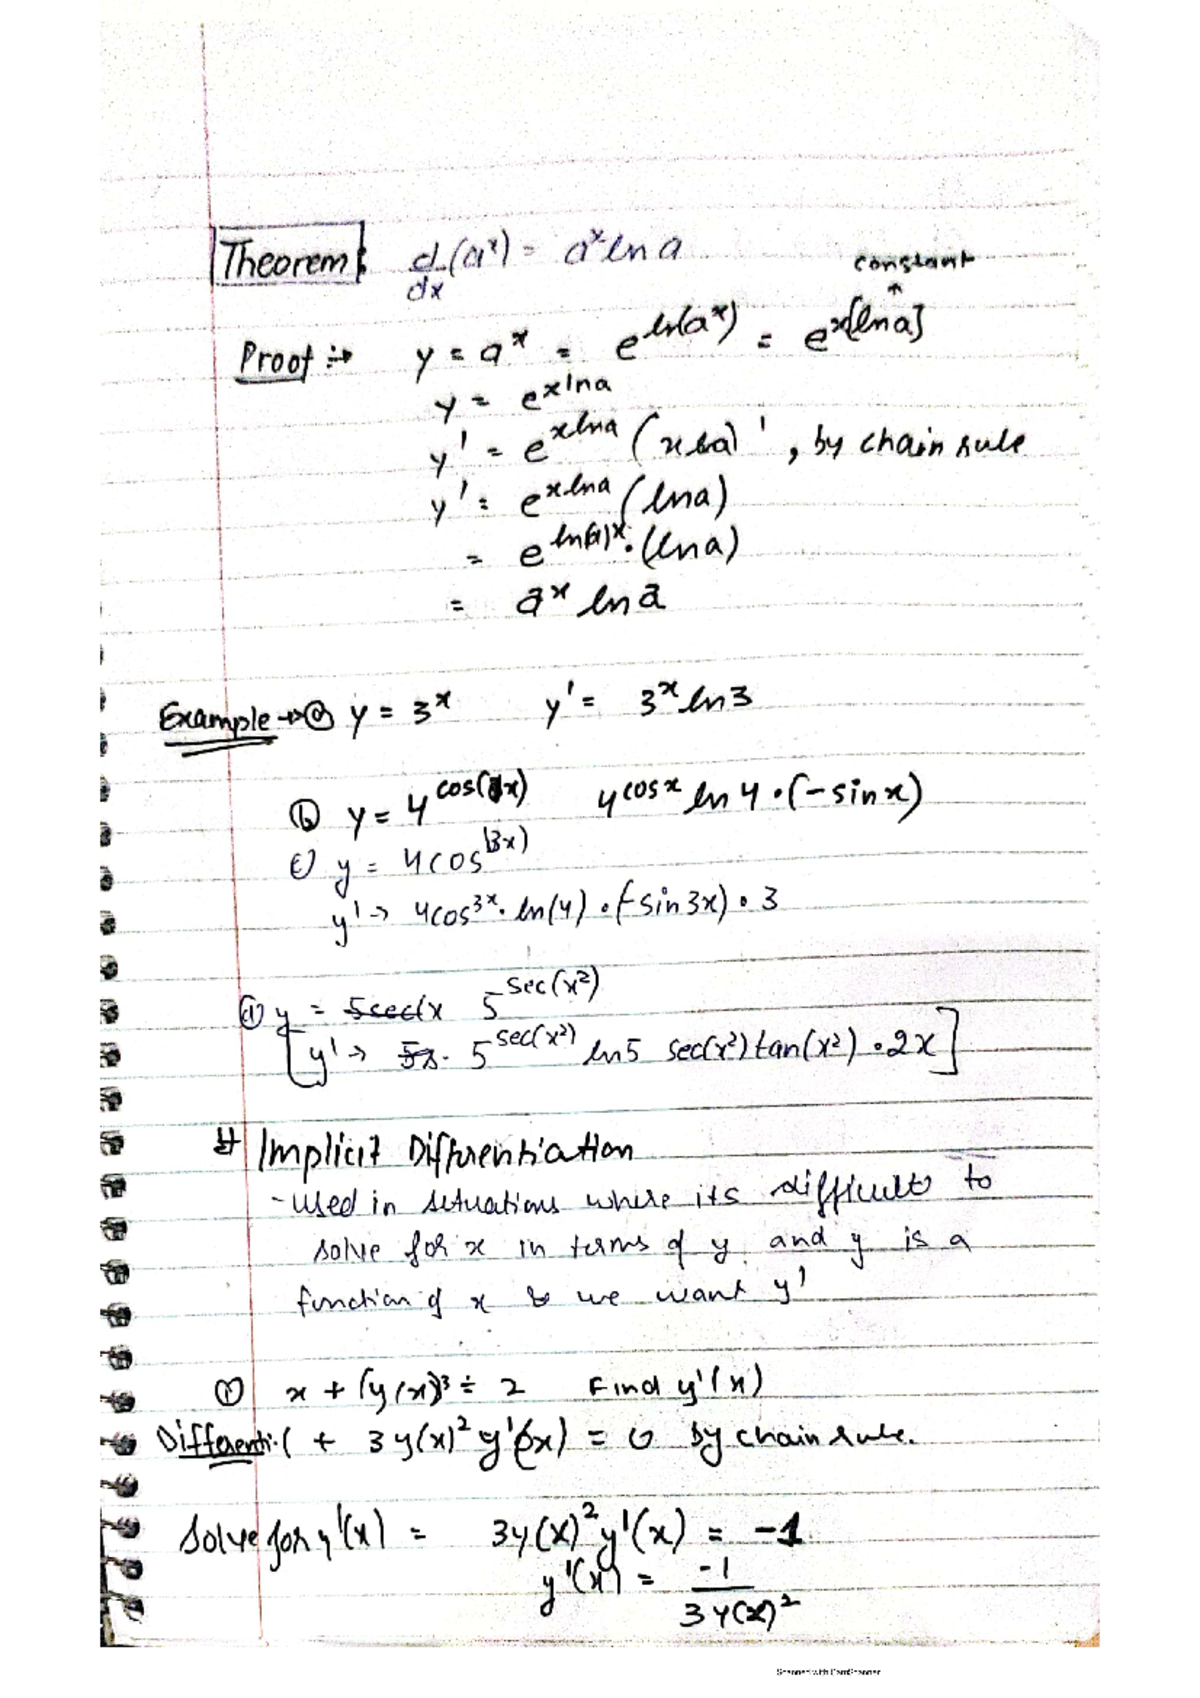 Theorem: d/dx (aˣ) = aˣ ln a
constant
↑
Proof :→ y = aˣ = e^ln(aˣ) = e^x[ln a]
y = e^x ln a
y' = e^x ln a (x ln a)', by chain rule
y' = e^x ln a (ln a)
= e^ln(a)x · (ln a)
= aˣ ln a
Example → ⓐ y = 3ˣ y' = 3ˣ ln 3
ⓑ y = 4^cos(x) 4^cos x ln 4 · (- sin x)
c) y = 4cos^(3x)
y' → 4cos^3x · ln(4) · (- sin 3x) · 3
ⓓ y = 5sec(x 5^sec(x²)
[y' → 5^sec(x²) ln 5 sec(x²) tan(x²) · 2x]
# Implicit Differentiation
- used in situations where its difficult to
solve for x in terms of y and y is a
function of x & we want y'
① x + (y(x))³ = 2 Find y'(x)
Differenti. 1 + 3y(x)² y'(x) = 0 by chain rule.
Solve for y'(x) = 3y(x)² y'(x) = -1
y'(x) = -1 / 3y(x)²
Scanned with CamScanner